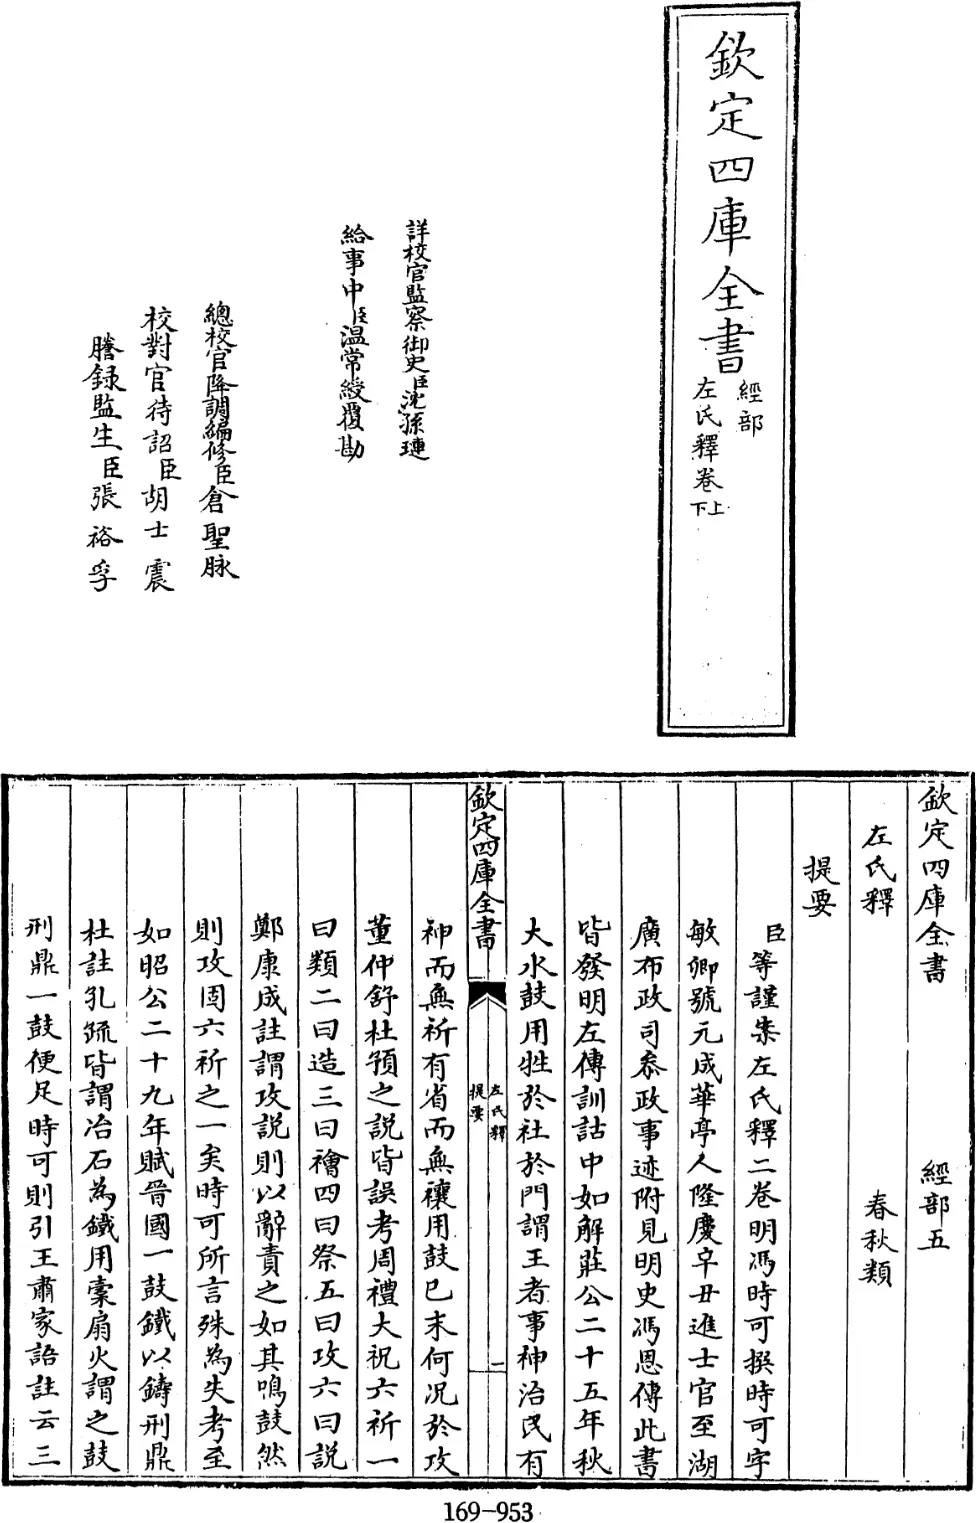 欽定四庫全書
經部
左氏釋卷上下
詳校官監察御史臣沈孫璉
給事中臣温常綬覆勘
總校官降調編修臣倉聖脉
校對官待詔臣胡士震
謄録監生臣張裕孚
欽定四庫全書 經部五
左氏釋 春秋類
提要
臣等謹案左氏釋二卷明馮時可撰時可字
敏卿號元成華亭人隆慶辛丑進士官至湖
廣布政司叅政事迹附見明史馮恩傳此書
皆發明左傳訓詁中如解莊公二十五年秋
大水鼓用牲於社於門謂王者事神治民有
欽定四庫全書
左氏釋
提要
一
神而無祈有省而無禳用鼓已末何况於攻
董仲舒杜預之説皆誤考周禮大祝六祈一
曰類二曰造三曰禬四曰禜五曰攻六曰説
鄭康成註謂攻説則以辭責之如其鳴鼓然
則攻固六祈之一矣時可所言殊為失考至
如昭公二十九年賦晉國一鼓鐵以鑄刑鼎
杜註孔疏皆謂冶石為鐵用橐扇火謂之鼓
刑鼎一鼓便足時可則引王肅家語註云三
169-953